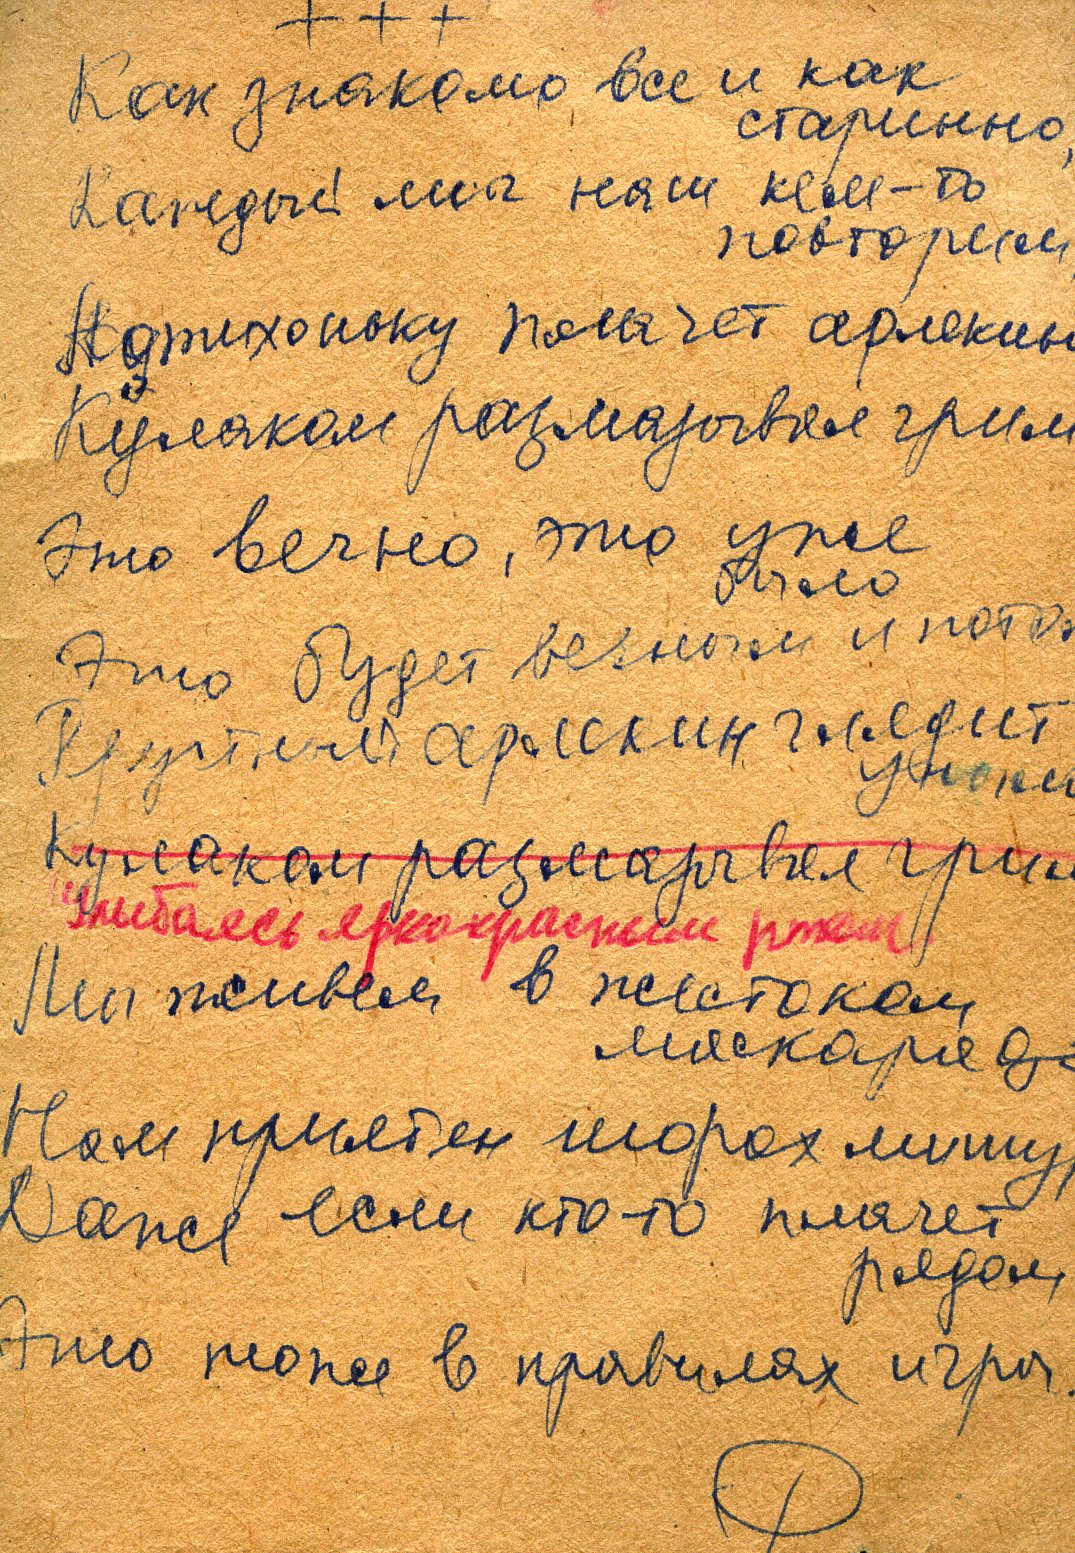 +++
Как знакомо все и как
старинно,
Каждый миг наш кем-то
повторим,
Потихоньку плачет арлекин
Кулаком размазывая грим
Это вечно, это уже
было
Это будет вечным и пото
Грустный арлекин глядит
уныл
Кулаком размазывая грим
Улыбаясь яркокрасным ртом.
Мы живем в жестоком
маскараде
Нам приятен шорох мишур
Даже если кто-то плачет
рядом
Это тоже в правилах игры.